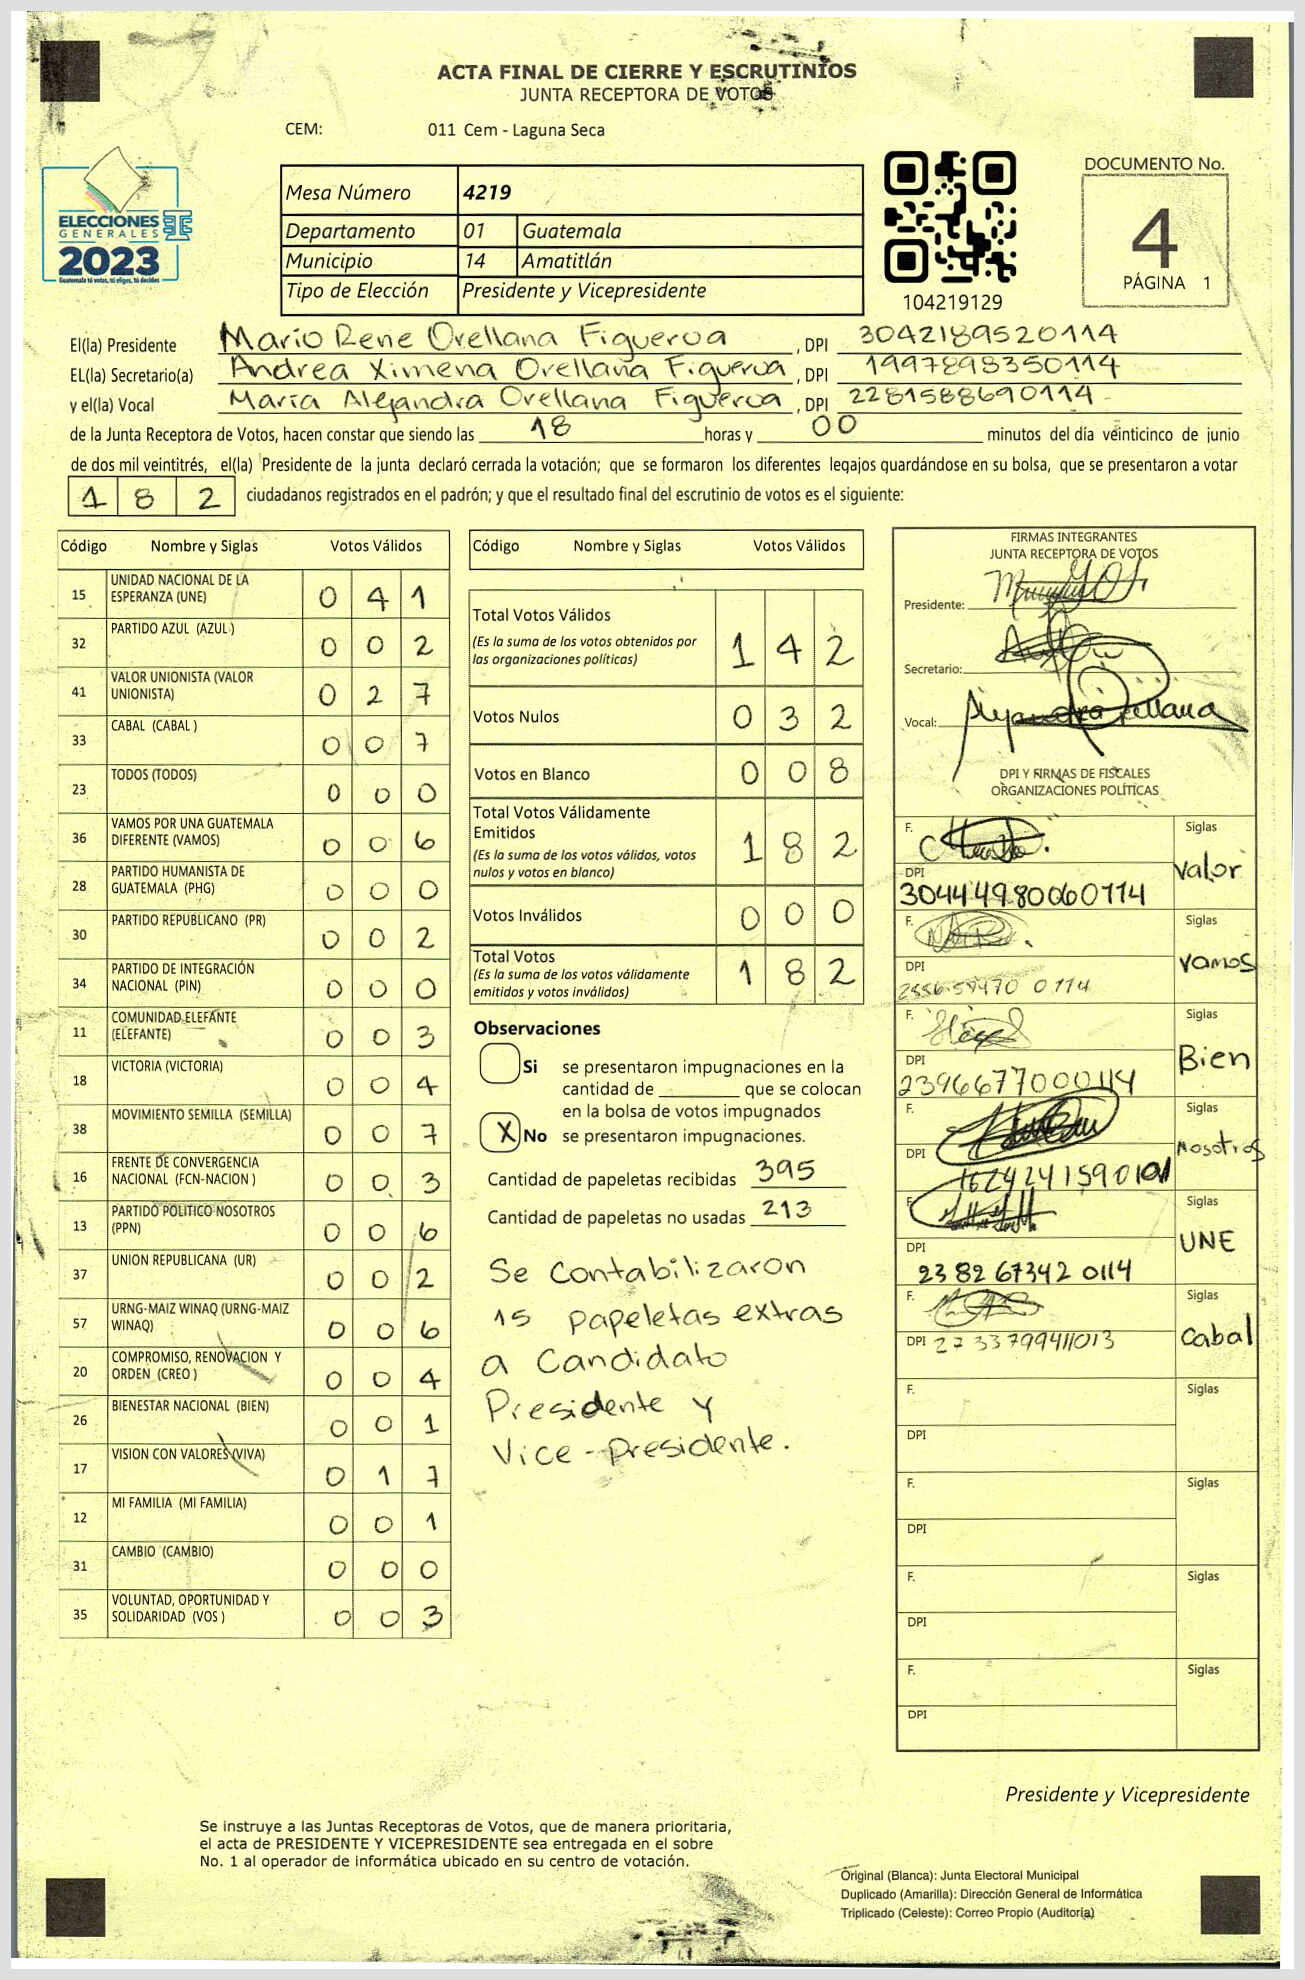 ACTA FINAL DE CIERRE Y ESCRUTINIOS
JUNTA RECEPTORA DE VOTOS
CEM: 011 Cem - Laguna Seca
ELECCIONES
GENERALES
2023
Guatemala tú votas, tú eliges, tú decides
Mesa Número 4219
Departamento 01 Guatemala
Municipio 14 Amatitlán
Tipo de Elección Presidente y Vicepresidente
104219129
DOCUMENTO No.
4
PÁGINA 1
El(la) Presidente Mario Rene Orellana Figueroa , DPI 3042189520114
EL(la) Secretario(a) Andrea Ximena Orellana Figueroa , DPI 1997898350114
y el(la) Vocal María Alejandra Orellana Figueroa , DPI 2281588690114
de la Junta Receptora de Votos, hacen constar que siendo las 18 horas y 00 minutos del día veinticinco de junio
de dos mil veintitrés, el(la) Presidente de la junta declaró cerrada la votación; que se formaron los diferentes legajos guardándose en su bolsa, que se presentaron a votar
1 8 2 ciudadanos registrados en el padrón; y que el resultado final del escrutinio de votos es el siguiente:
Código Nombre y Siglas Votos Válidos
15 UNIDAD NACIONAL DE LA ESPERANZA (UNE) 0 4 1
32 PARTIDO AZUL (AZUL) 0 0 2
41 VALOR UNIONISTA (VALOR UNIONISTA) 0 2 7
33 CABAL (CABAL ) 0 0 7
23 TODOS (TODOS) 0 0 0
36 VAMOS POR UNA GUATEMALA DIFERENTE (VAMOS) 0 0 6
28 PARTIDO HUMANISTA DE GUATEMALA (PHG) 0 0 0
30 PARTIDO REPUBLICANO (PR) 0 0 2
34 PARTIDO DE INTEGRACIÓN NACIONAL (PIN) 0 0 0
11 COMUNIDAD ELEFANTE (ELEFANTE) 0 0 3
18 VICTORIA (VICTORIA) 0 0 4
38 MOVIMIENTO SEMILLA (SEMILLA) 0 0 7
16 FRENTE DE CONVERGENCIA NACIONAL (FCN-NACION ) 0 0 3
13 PARTIDO POLITICO NOSOTROS (PPN) 0 0 6
37 UNION REPUBLICANA (UR) 0 0 2
57 URNG-MAIZ WINAQ (URNG-MAIZ WINAQ) 0 0 6
20 COMPROMISO, RENOVACION Y ORDEN (CREO ) 0 0 4
26 BIENESTAR NACIONAL (BIEN) 0 0 1
17 VISION CON VALORES (VIVA) 0 1 7
12 MI FAMILIA (MI FAMILIA) 0 0 1
31 CAMBIO (CAMBIO) 0 0 0
35 VOLUNTAD, OPORTUNIDAD Y SOLIDARIDAD (VOS ) 0 0 3
Código Nombre y Siglas Votos Válidos
Total Votos Válidos 1 4 2
(Es la suma de los votos obtenidos por
las organizaciones políticas)
Votos Nulos 0 3 2
Votos en Blanco 0 0 8
Total Votos Válidamente
Emitidos 1 8 2
(Es la suma de los votos válidos, votos
nulos y votos en blanco)
Votos Inválidos 0 0 0
Total Votos 1 8 2
(Es la suma de los votos válidamente
emitidos y votos inválidos)
Observaciones
Si se presentaron impugnaciones en la
cantidad de ________ que se colocan
en la bolsa de votos impugnados
X No se presentaron impugnaciones.
Cantidad de papeletas recibidas 395
Cantidad de papeletas no usadas 213
Se Contabilizaron
15 papeletas extras
a Candidato
Presidente y
Vice-presidente.
FIRMAS INTEGRANTES
JUNTA RECEPTORA DE VOTOS
Presidente:
Secretario:
Vocal: Alejandra Orellana
DPI Y FIRMAS DE FISCALES
ORGANIZACIONES POLÍTICAS
F. Siglas
Valor
DPI
3044498006 0114
F. Siglas
Vamos
DPI
0114
F. Siglas
Bien
DPI
2396677000114
F. Siglas
Nosotros
DPI
1624241590101
F. Siglas
UNE
DPI
2382673420114
F. Siglas
Cabal
DPI 2733799411013
F. Siglas
DPI
F. Siglas
DPI
F. Siglas
DPI
F. Siglas
DPI
Presidente y Vicepresidente
Se instruye a las Juntas Receptoras de Votos, que de manera prioritaria,
el acta de PRESIDENTE Y VICEPRESIDENTE sea entregada en el sobre
No. 1 al operador de informática ubicado en su centro de votación.
Original (Blanca): Junta Electoral Municipal
Duplicado (Amarilla): Dirección General de Informática
Triplicado (Celeste): Correo Propio (Auditoría)